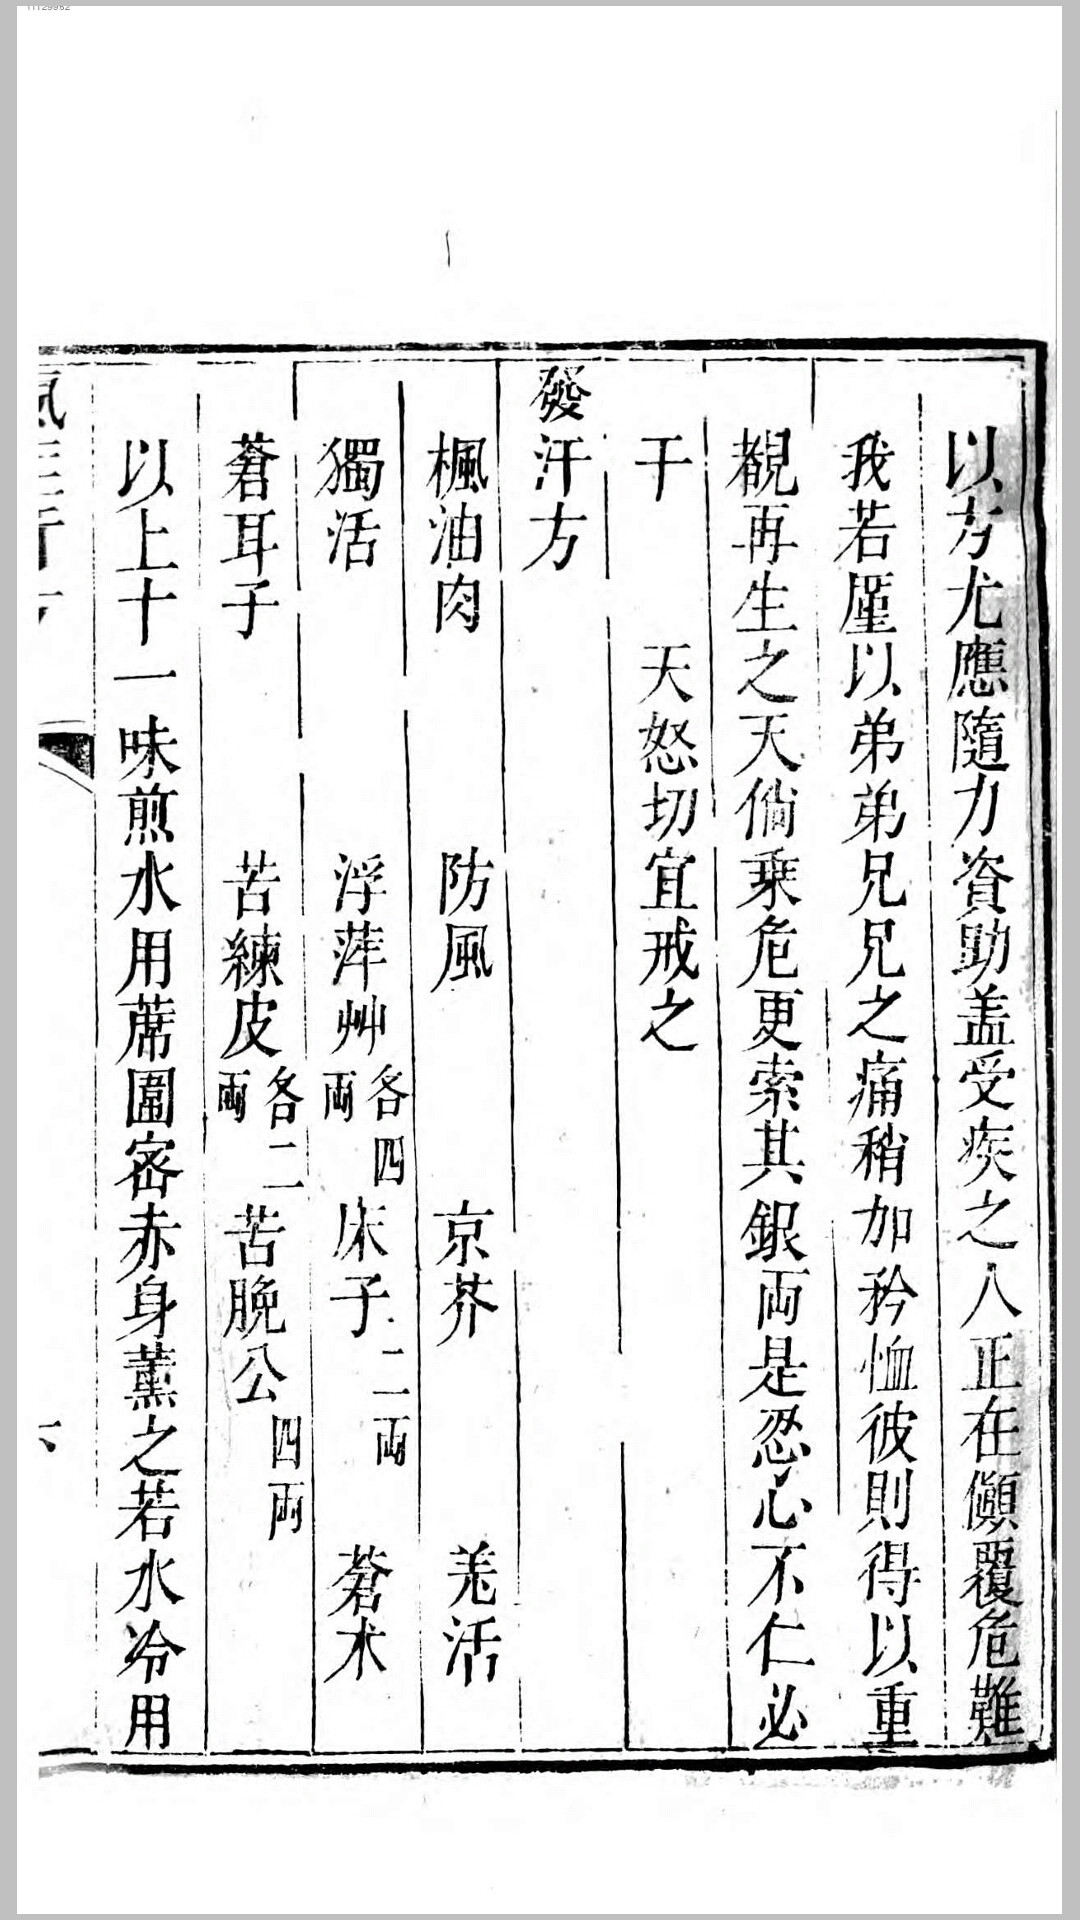 以方尤應隨力資助盖受疾之人正在傾覆危難
我若廑以弟弟兄兄之痛稍加矜恤彼則得以重
覩再生之天倘乗危更索其銀両是忍心不仁必
干　天怒切宜戒之
發汗方
楓油肉　防風　京芥　羗活
獨活　浮萍艸各四両　床子二両　蒼朮
蒼耳子　苦練皮各二両　苦晩公四両
以上十一味煎水用蓆圍宻赤身薰之若水冷用